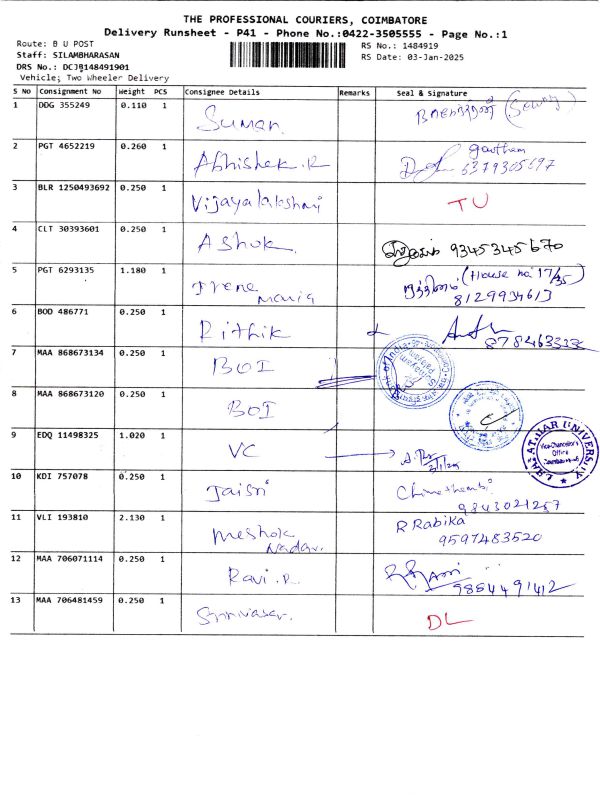 THE PROFESSIONAL COURIERS, COIMBATORE
Delivery Runsheet - P41 - Phone No.:0422-3505555 - Page No.:1
Route: B U POST
RS No.: 1484919
Staff: SILAMBHARASAN
RS Date: 03-Jan-2025
DRS No.: DCJB148491901
Vehicle; Two Wheeler Delivery
S No Consignment No Weight PCS Consignee Details Remarks Seal & Signature
1 DDG 355249 0.110 1 Suman
2 PGT 4652219 0.260 1 Abhishek.R Gowtham
6379305697
3 BLR 1250493692 0.250 1 Vijayalakshmi TU
4 CLT 30393601 0.250 1 Ashok 9345345670
5 PGT 6293135 1.180 1 Irene (House no 17/35)
Maria 8129934613
6 BOD 486771 0.250 1 Rithik
7 MAA 868673134 0.250 1 BOI
8 MAA 868673120 0.250 1 BOI
9 EDQ 11498325 1.020 1 VC
Vice-Chancellor's
Office
10 KDI 757078 0.250 1 Jaisri
9843021257
11 VLI 193810 2.130 1 Meshok R Rabika
Nadar. 9597483520
12 MAA 706071114 0.250 1 Ravi.R
9884491412
13 MAA 706481459 0.250 1 Srinivasan DL